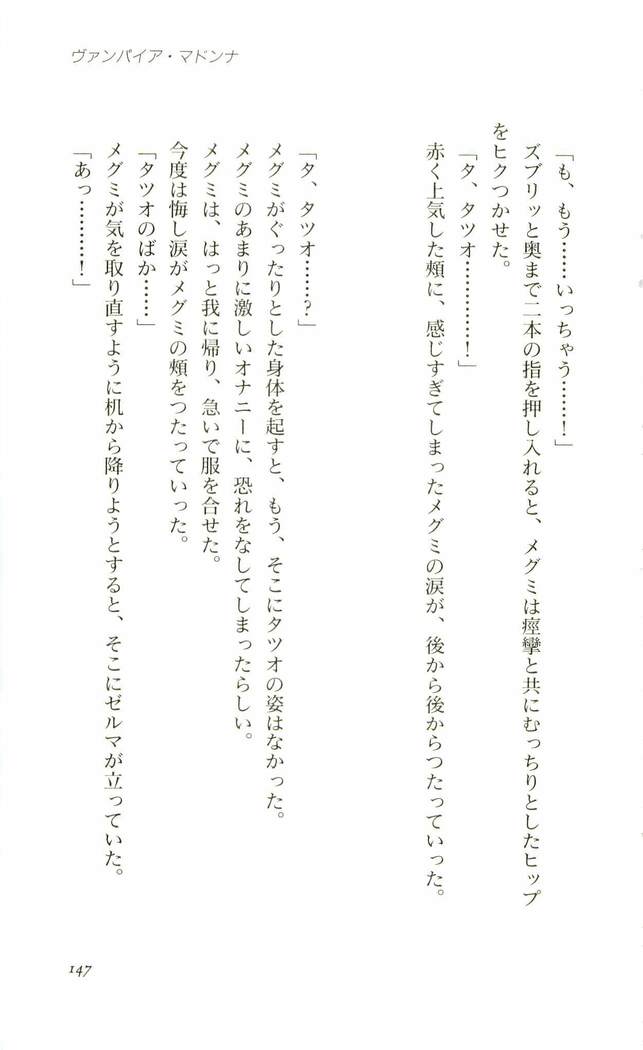 ヴァンパイア・マドンナ
「も、もう……いっちゃう………！」
ズブリッと奥まで二本の指を押し入れると、メグミは痙攣と共にむっちりとしたヒップ
をヒクつかせた。
「タ、タツオ…………！」
赤く上気した頬に、感じすぎてしまったメグミの涙が、後から後からつたっていった。
「タ、タツオ……？」
メグミがぐったりとした身体を起すと、もう、そこにタツオの姿はなかった。
メグミのあまりに激しいオナニーに、恐れをなしてしまったらしい。
メグミは、はっと我に帰り、急いで服を合せた。
今度は悔し涙がメグミの頬をつたっていった。
「タツオのばか……」
メグミが気を取り直すように机から降りようとすると、そこにゼルマが立っていた。
「あっ………！」
147